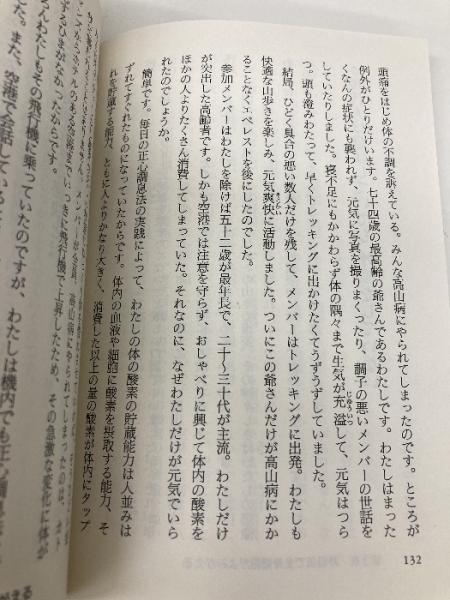 頭痛をはじめ体の不調を訴えている。みんな高山病にやられてしまったのです。ところが
例外がひとりだけいます。七十四歳の最高齢の爺さんであるわたしです。わたしはまった
くなんの症状にも襲われず、元気に写真を撮りまくったり、調子の悪いメンバーの世話を
していたりしました。寝不足にもかかわらず体の隅々まで生気が充溢して、元気はつら
つ。頭も澄みわたって、早くトレッキングに出かけたくてうずうずしていました。
結局、ひどく具合の悪い数人だけを残して、メンバーはトレッキングに出発。わたしも
快適な山歩きを楽しみ、元気爽快に活動しました。ついにこの爺さんだけが高山病にかか
ることなくエベレストを後にしたのでした。
参加メンバーはわたしを除けば五十二歳が最年長で、二十〜三十代が主流。わたしだけ
が突出した高齢者です。しかも空港では注意を守らず、おしゃべりに興じて体内の酸素を
ほかの人よりたくさん消費してしまっていた。それなのに、なぜわたしだけが元気でいら
れたのでしょうか。
簡単です。毎日の正心調息法の実践によって、わたしの体の酸素の貯蔵能力は人並みは
ずれてすぐれたものになっていたからです。体内の血液や細胞に酸素を摂取する能力、そ
れを貯蔵する能力、ともに人よりかなり大きく、消費した以上の量の酸素が体内にタップ
132
高山病にやられてしまったのは、ホ
空港までいっきに飛行機で上昇したため、その急激な変化に体が
するひまがなかったからです。
ろんわたしもその飛行機に乗っていたのですが、わたしは機内でも正心調
た。また、空港で会話してい